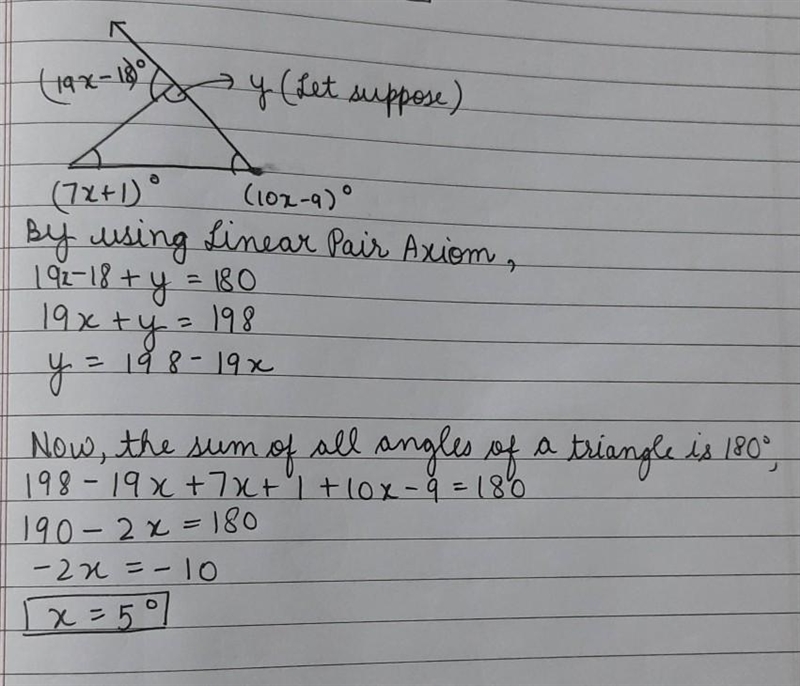 (19x-18)° → y (Let suppose)
(7x+1)° (10x-9)°
By using Linear Pair Axiom,
19x-18 + y = 180
19x + y = 198
y = 198 - 19x
Now, the sum of all angles of a triangle is 180°,
198 - 19x + 7x + 1 + 10x - 9 = 180
190 - 2x = 180
-2x = -10
x = 5°